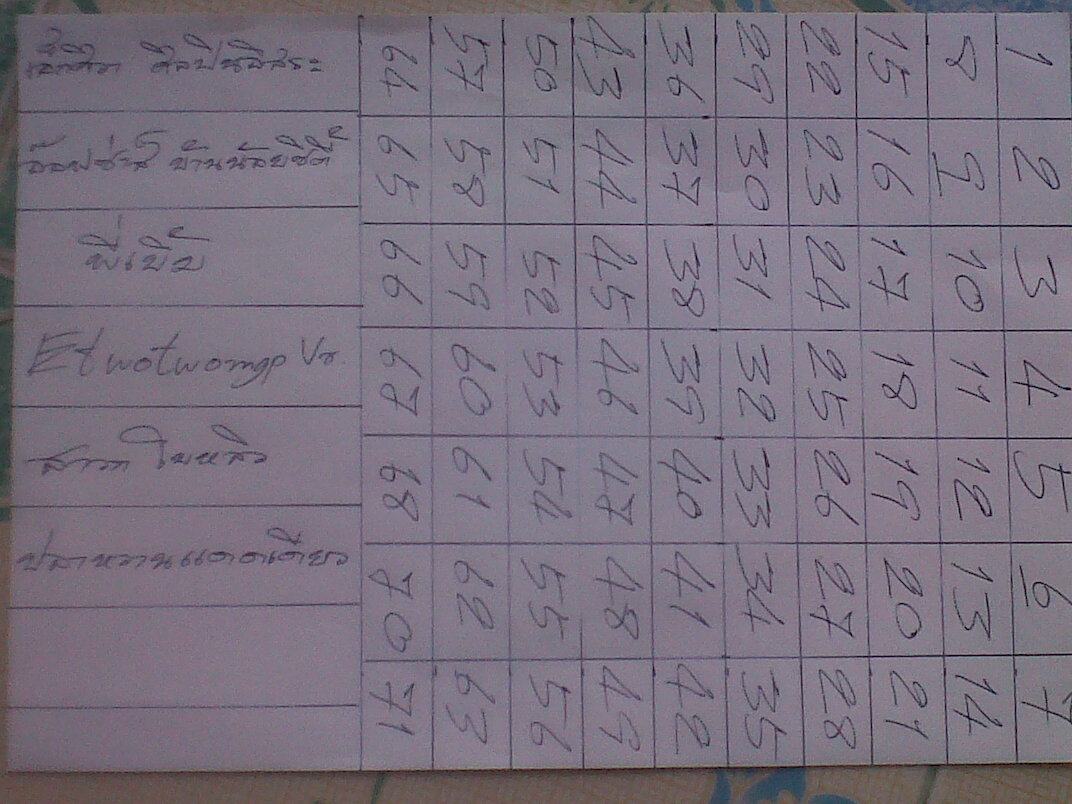 ศิลปินอิสระ
บ้านน้อยซิตี้
Etwotwomgp Vr.
สาวก ใบหลิว
ปลาหวานแดดเดียว
1 2 3 4 5 6 7
8 9 10 11 12 13 14
15 16 17 18 19 20 21
22 23 24 25 26 27 28
29 30 31 32 33 34 35
36 37 38 39 40 41 42
43 44 45 46 47 48 49
50 51 52 53 54 55 56
57 58 59 60 61 62 63
64 65 66 67 68 70 71